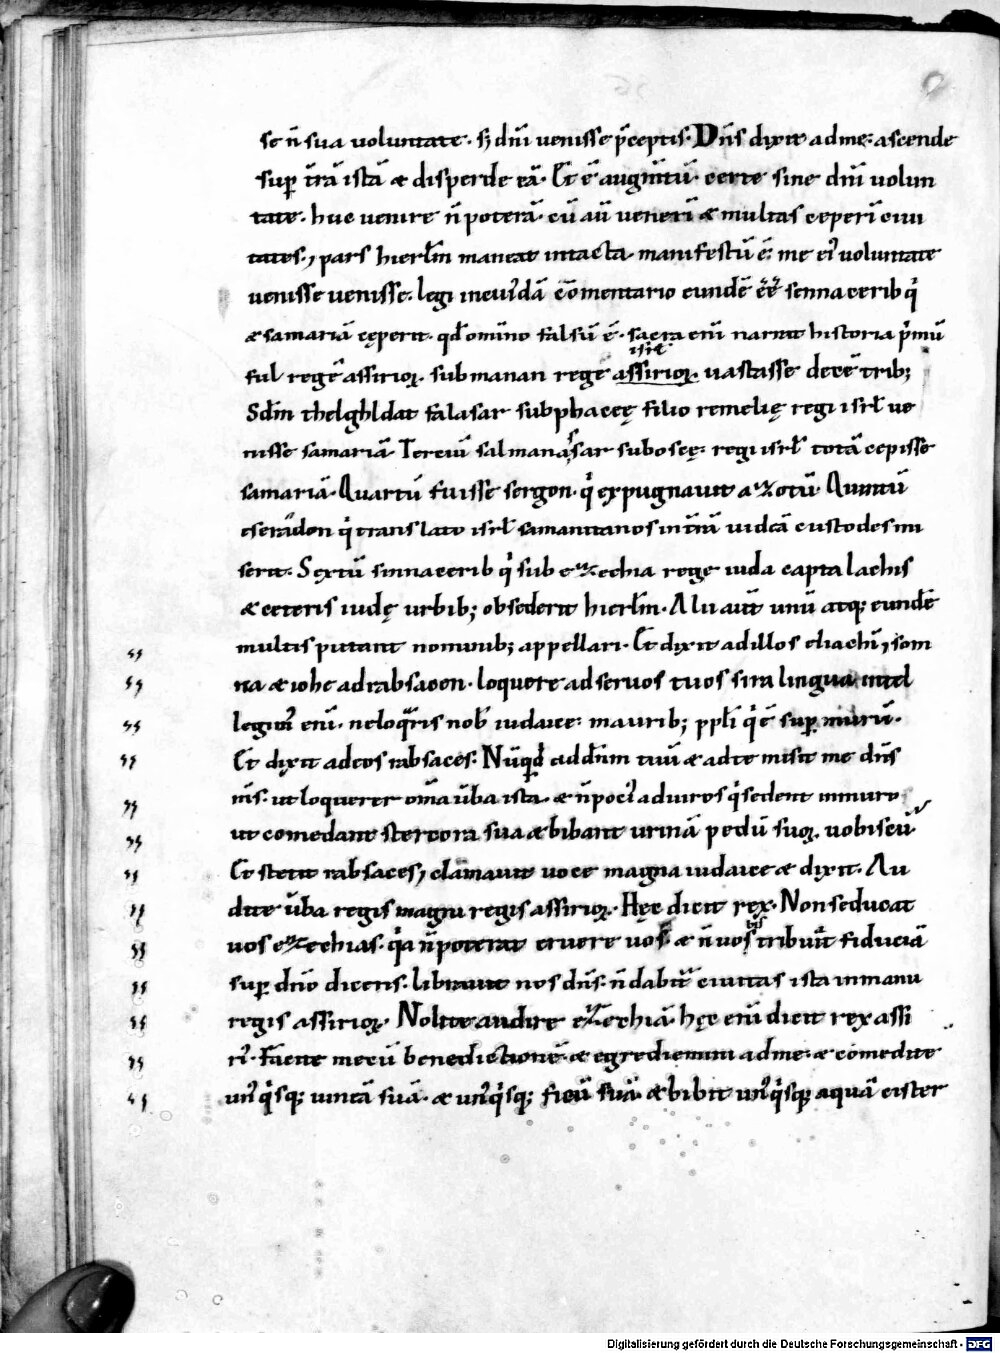 se n̄ sua voluntate · sꝫ dn̄i venisse p̄ceptis · Dn̄s dixit ad me: ascende
sup̄ t̄rā istā & disperde eā · Et ē augm̄tū · certe sine dn̄i volun
tate · huc venire n̄ poterā · cū aū veneri̅ & multas ceperi̅ ciui
tates ·, pars hierl̄m maneat intacta · manifestū ē: me ei' voluntate
venisse venisse · legi in cui'dā cōmentario eundē ēē sennacerib q'
& samariā cęperit · qd̄ omīno falsū ē · sacra eni̅ narrat historia p'mū
isrł
ful regē assirioꝝ · sub manan rege assirioꝝ · vastasse decē trib;
Scd̄m thelghldat falasar sub phaceę filio remelię regi isrl̄ ve
nisse samariā Terciū salmanassar sub oseę: regi isrl̄ totā cepisse
samariā · Quartū fuisse sergon · q' expugnauit azotū · Quintū
eseradon q' translato isrl̄ samaritanos in t̄rā iudeā custodes mi
serit · Sextū sinnacerib q' sub ezechia rege iuda capta lachis
& ceteris iudę urbib; obsederit hierl̄m · Alii aut̄ unū atq; eundē
multis putant nominib; appellari · Et dixit ad illos eliachi̅, som
na & iohe ad rabsacen · loquere ad servos tuos sira lingua intel
legim' eni̅ · ne loq̄ris nob' iudaice: in aurib; ppl̄i q' ē sup̄ murū ·
Et dixit ad eos rabsaces: Nūqd̄ ad dn̄m tuū & ad te misit me dn̄s
m̄s: ut loquerer om̄a ūba ista · & n̄ poci' ad viros q' sedent in muro
ut comedant stercora sua & bibant urinā pedū suoꝝ vobiscū
Et stetit rabsaces, clamauit voce magna iudaice & dixit · Au
dite ūba regis magni regis assirioꝝ · Hęc dicit rex · Non seducat
vos ezechias · q'a n̄ poterat eruere vos · & n̄ vobis tribuat fiduciā
sup̄ dn̄o dicens · liberauit nos dn̄s: n̄ dabit̄ ciuitas ista in manu
regis assirioꝝ · Nolite audire ezechiā · hęc eni̅ dicit rex assi
ri' · Facite mecū benedictionē · & egredimini ad me: & comedite
un'q'sq; vineā suā · & un'q'sq; ficū suā · & bibit un'q'sq; aquā cister
Digitalisierung gefördert durch die Deutsche Forschungsgemeinschaft - DFG